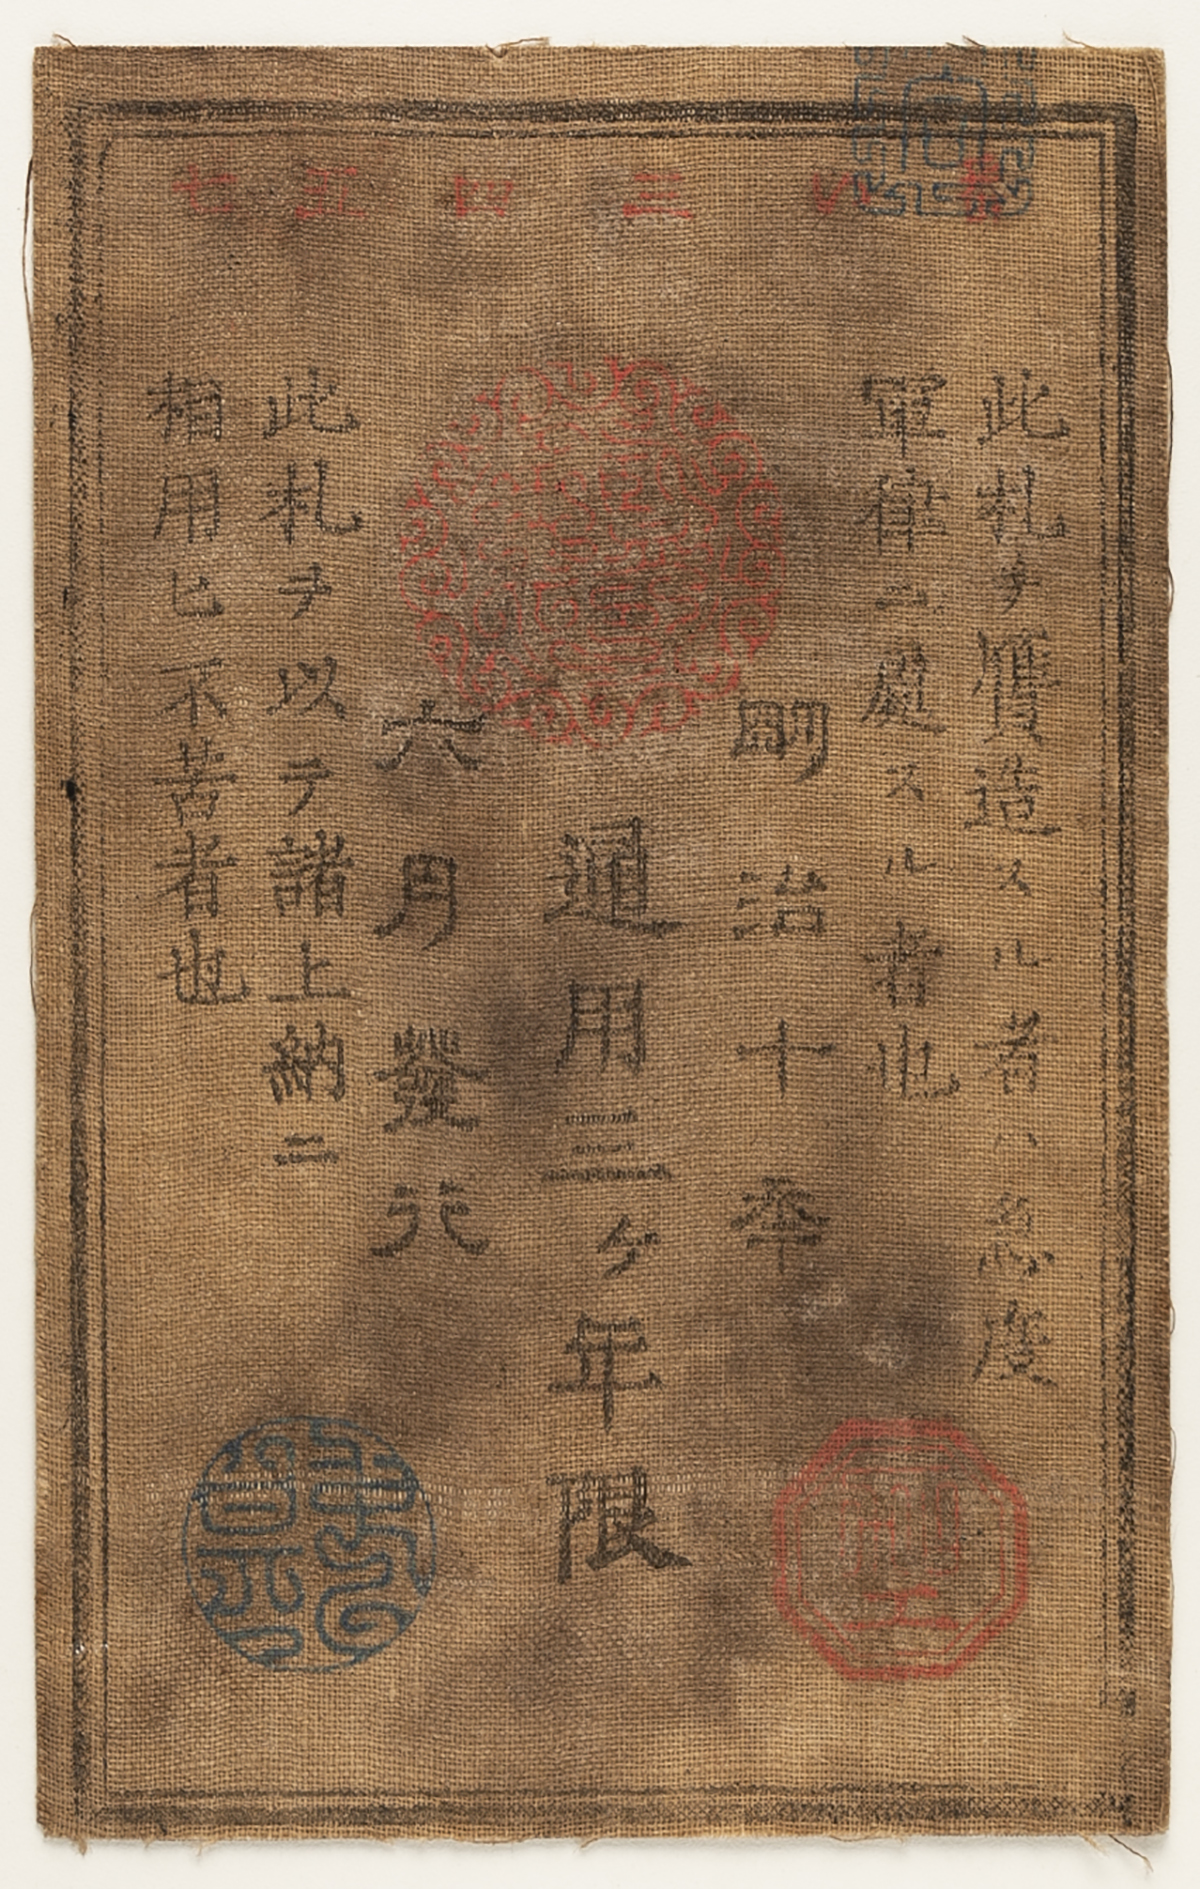 三四五七
此札ヲ贋造スル者ハ急度
軍律ニ處スル者也
明治十年
通用ケ年限
六月發行
此札ヲ以テ諸上納ニ
相用ヒ不苦者也